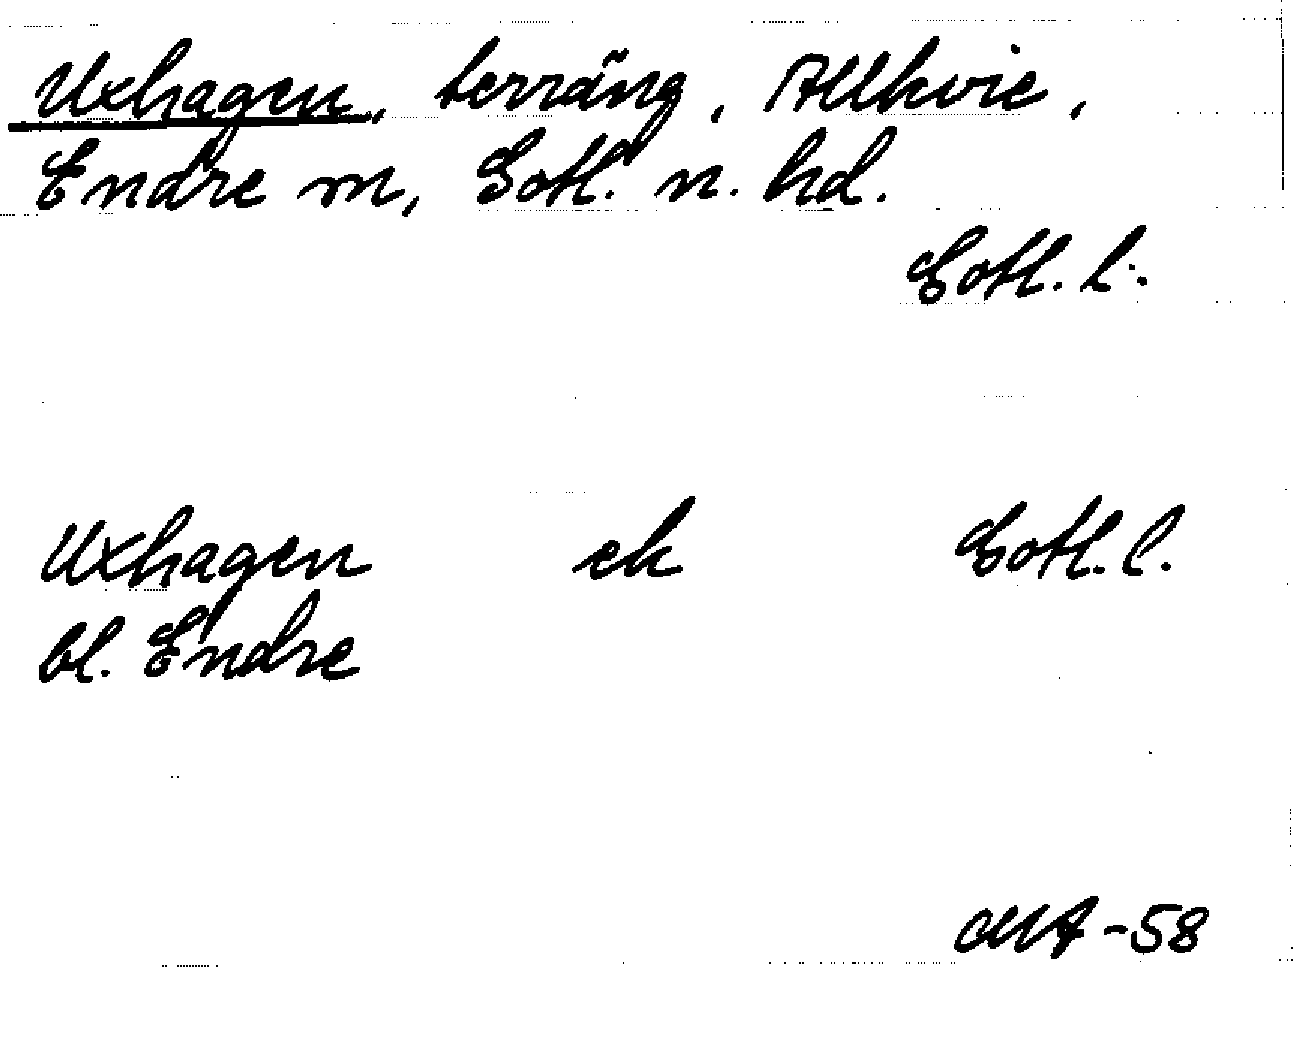 Uxhagen, terräng, Allkvie,
Endre sn, Gotl. n. hd.
Gotl. l.
Uxhagen ek Gotl. l.
bl. Endre
MA -58